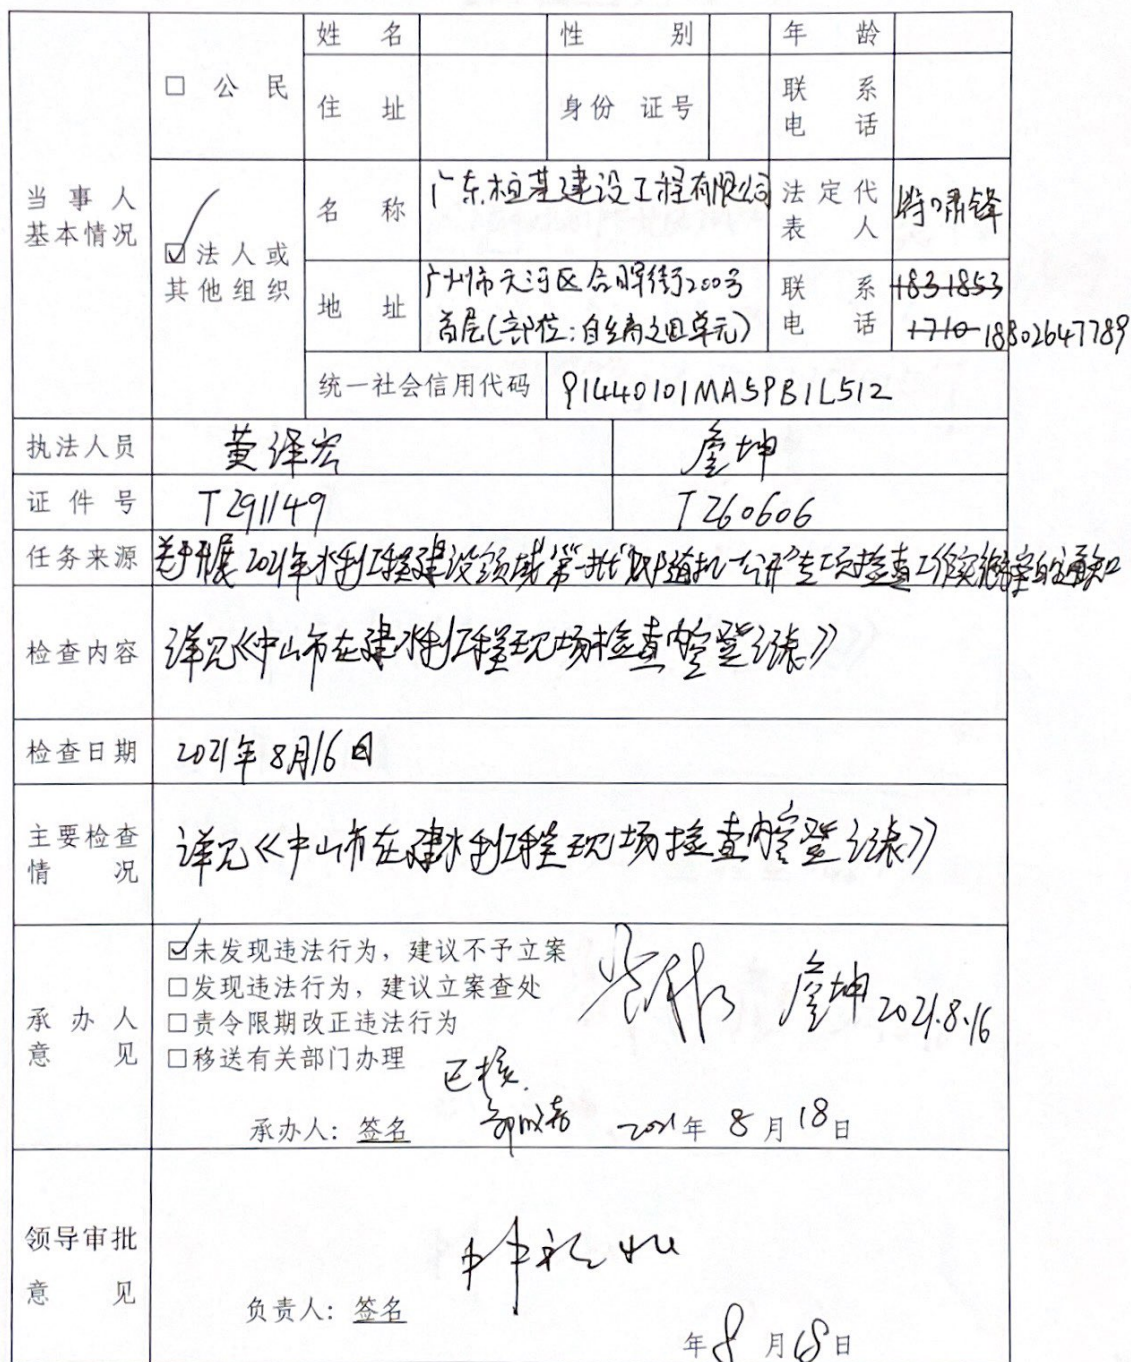 姓名 性别 年龄
□ 公民 住址 身份证号 联系电话
当事人基本情况
☑ 法人或其他组织
名称 广东桓基建设工程有限公司 法定代表人 啸锋
地址 广州市天河区合晖街200号 联系电话 18318531710 18802647789
首层(部位:自编之四单元)
统一社会信用代码 91440101MA59B1L512
执法人员 黄泽宏 詹坤
证件号 T291149 T260606
任务来源 关于开展2021年水利工程建设领域“第一批”“双随机一公开”专项检查工作实施方案的通知
检查内容 详见《中山市在建水利工程现场检查内容登记表》
检查日期 2021年8月16日
主要检查情况 详见《中山市在建水利工程现场检查内容登记表》
承办人意见
☑未发现违法行为，建议不予立案
□发现违法行为，建议立案查处 詹坤 2021.8.16
□责令限期改正违法行为
□移送有关部门办理 已核.
承办人：签名 2021年8月18日
领导审批意见
负责人：签名
年8月18日